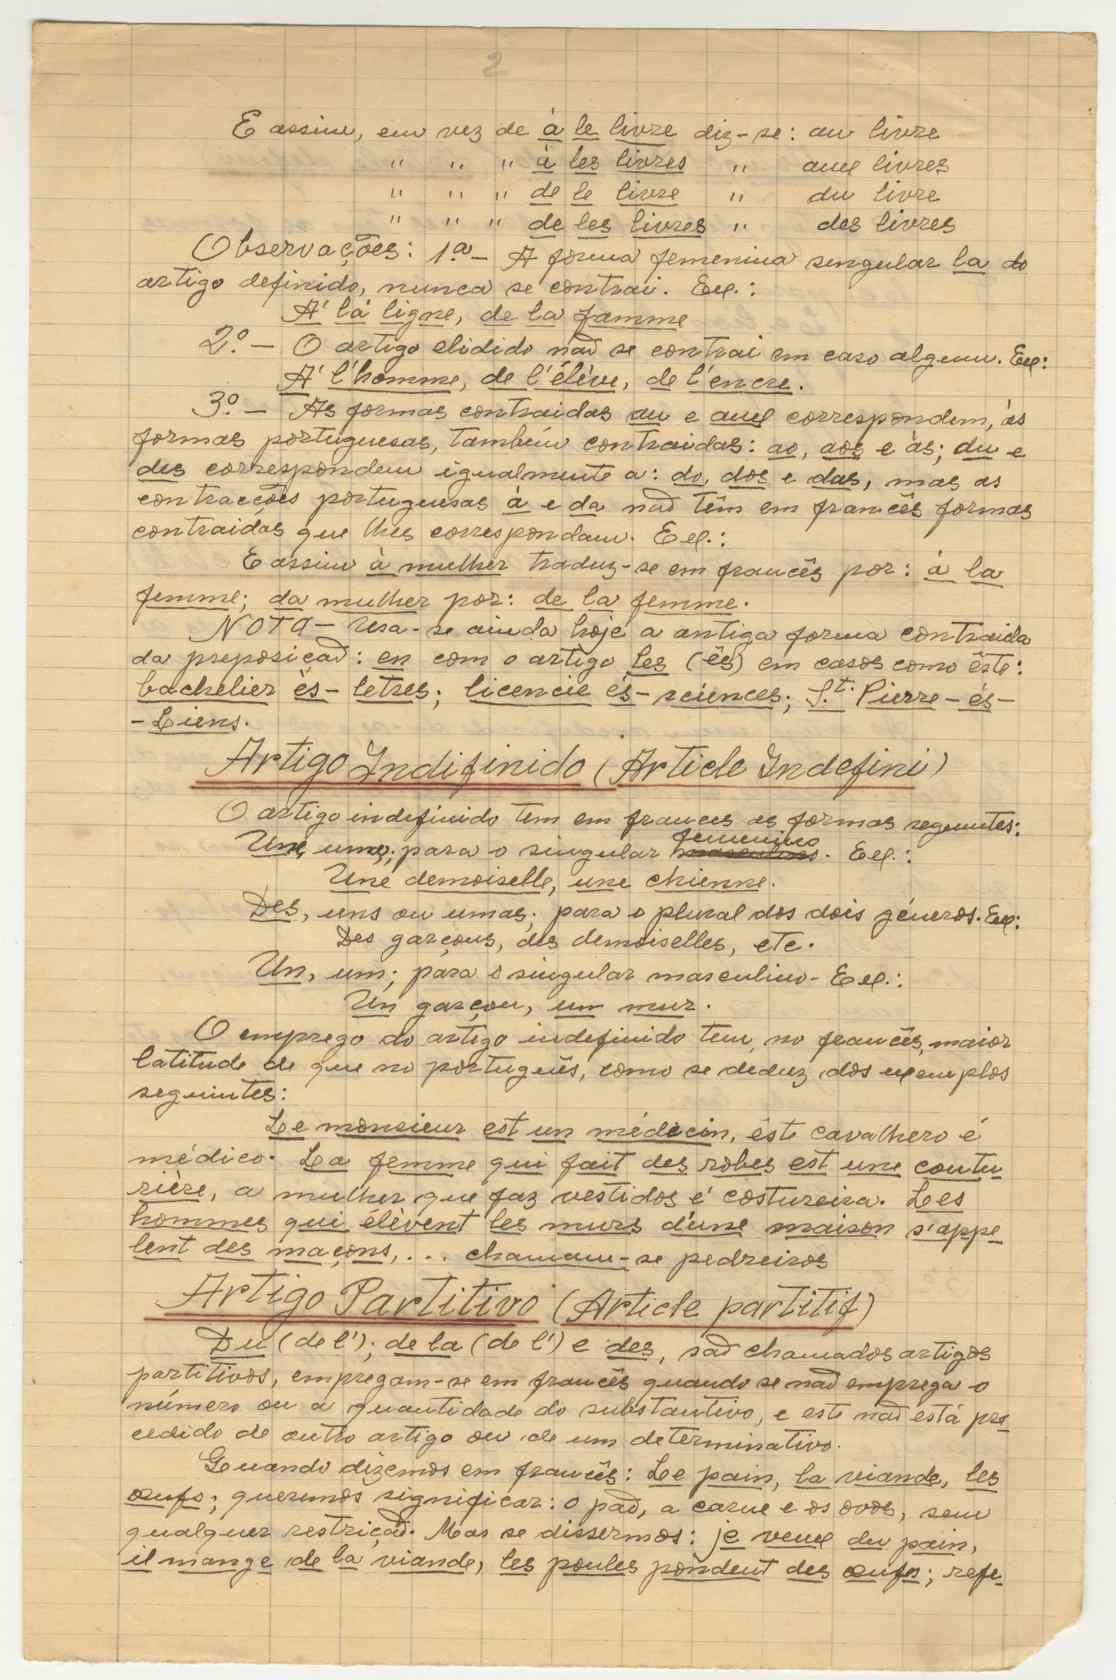 2
E assim, em vez de à le livre diz-se: au livre
" " " à les livres " aux livres
" " " de le livre " du livre
" " " de les livres " des livres
Observações: 1.ª - A forma femenina singular la do
artigo definido, nunca se contrai. Ex.:
A' la ligne, de la famme
2.º - O artigo elidido não se contrai em caso algum. Ex:
A' l'homme, de l'élève, de l'encre.
3.º - As formas contraidas au e aux correspondem, às
formas portuguesas, também contraidas: ao, aos e às; du e
des correspondem igualmente a: do, dos e das, mas as
contracções portuguesas à e da não têm em francês formas
contraidas que lhes correspondam. Ex.:
E assim à mulher traduz-se em francês por: à la
femme; da mulher por: de la femme.
NOTA - Usa-se ainda hoje a antiga forma contraida
da preposição: en com o artigo les (ès) em casos como êste:
bachelier ès-letres; licencie és-sciences; St. Pierre-és-
-Liens.
Artigo Indifinido (Article Indefini)
O artigo indefinido tem em frances as formas seguintes:
femenino
Une, uma; para o singular masculino. Ex.:
Une demoiselle, une chienne.
Des, uns ou umas; para o plural dos dois géneros. Ex:
Des garçons, des demoiselles, etc.
Un, um; para o singular masculino - Ex.:
Un garçon, un mur.
O emprego do artigo indefinido tem, no francês, maior
latitude de que no português, como se deduz dos exemplos
seguintes:
Le monsieur est un médecin, êste cavalhero é
médico. La femme qui fait des robes est une coutu-
rière, a mulher que faz vestidos é costureira. Les
hommes qui élèvent les murs d'une maison s'appe-
lent des maçons, ... chamam-se pedreiros
Artigo Partitivo (Article partitif)
Du (de l'); de la (de l') e des, são chamados artigos
partitivos, empregam-se em francês quando se não emprega o
número ou a quantidade do substantivo, e este não está pre-
cedido de outro artigo ou de um determinativo.
Quando dizemos em francês: Le pain, la viande, les
œufs; queremos significar: o pão, a carne e os ovos, sem
qualquer restrição. Mas se dissermos: je veux du pain,
il mange de la viande, les poules pondent des œufs; refe-